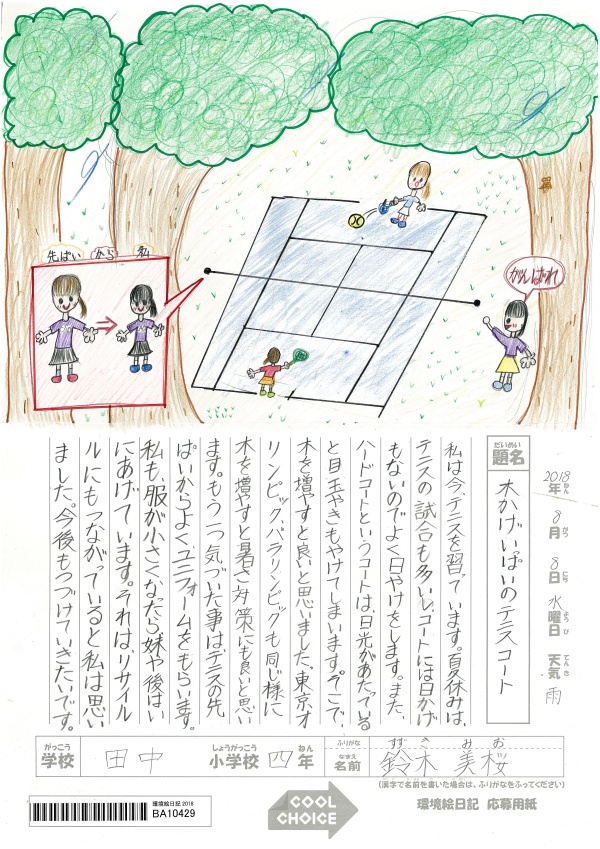 先ぱい から 私
がんばれ
2018年 8月 8日 水曜日 天気 雨
ねん がつ にち ようび てんき
だいめい
題名 木かげいっぱいのテニスコート
私は今、テニスを習っています。夏休みは、
テニスの試合も多いし、コートには日かげ
もないのでよく日やけをします。また、
ハードコートというコートは、日光があたっている
と目玉やきもやけてしまいます。そこで、
木を増やすと良いと思いました。東京、オ
リンピック、パラリンピックも同じ様に
木を増やすと暑さ対策にも良いと思い
ます。もう一つ気づいた事はテニスの先
ぱいからよくユニフォームをもらいます。
私も服が小さくなったら妹や後はい
にあげています。それは、リサイク
ルにもつながっていると私は思い
ました。今後もつづけていきたいです。
がっこう しょうがっこう ねん
学校 田中 小学校 四年
ふりがな すずき みお
なまえ
名前 鈴木 美桜
(漢字で名前を書いた場合は、ふりがなをふってください)
環境絵日記 2018
BA10429
COOL CHOICE
環境絵日記 応募用紙